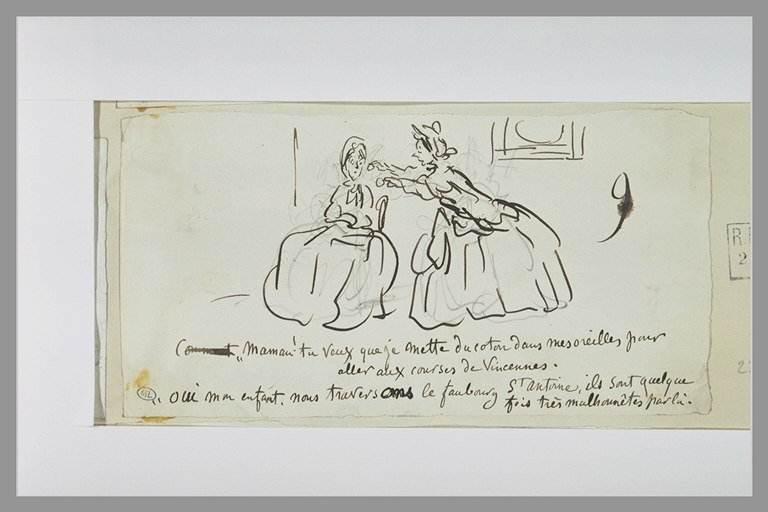 Comment, Maman! tu veux que je mette du coton dans mes oreilles pour
aller aux courses de Vincennes.
. oui mon enfant, nous traversons le faubourg St antoine, ils sont quelque
fois très malhonnêtes par là.
9
ML
R.
2
2